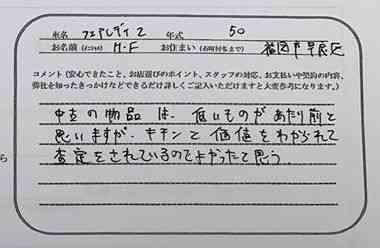 車名 フェアレディ Z 年式 50
お名前(イニシャル) M・F お住まい(市町村名まで) 福岡市早良区
コメント(安心できたこと、お店選びのポイント、スタッフの対応、お支払いや契約の内容、
弊社を知ったきっかけなどできるだけ詳しくご記入いただけますと大変参考になります。)
中古の物品は、低いものがあたり前と
思いますが、キチンと価値をわかられて
査定をされているのでよかったと思う
ら